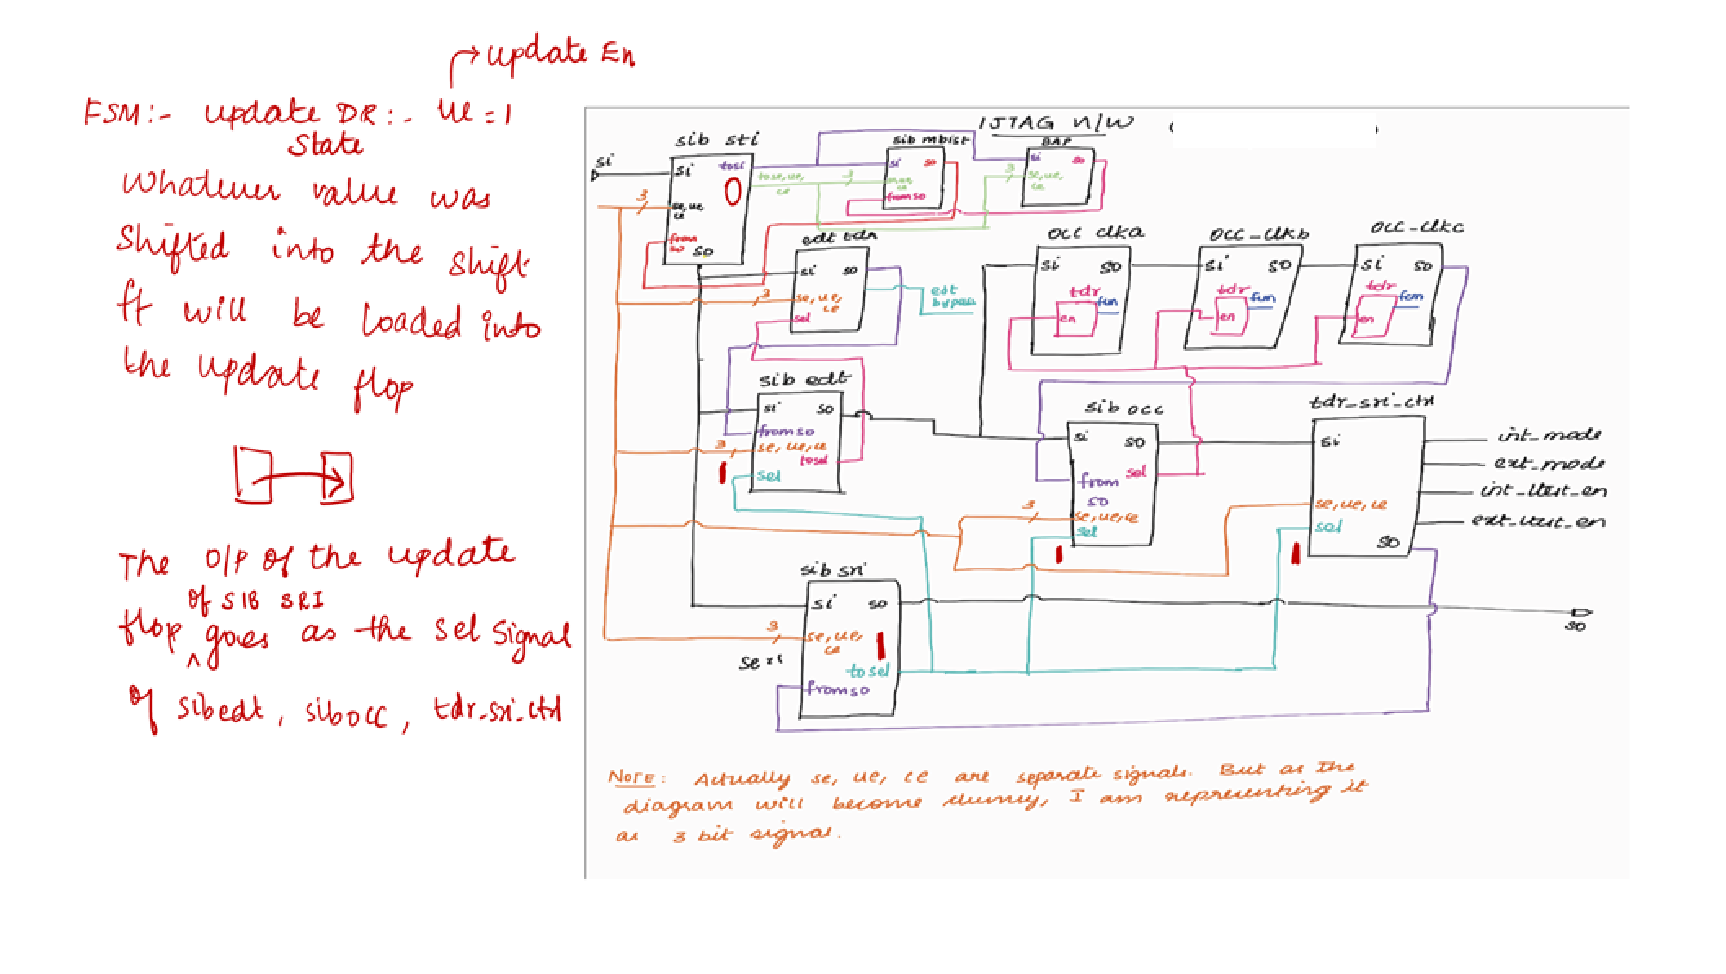 update En
FSM:- update DR:- ue=1
State
Whatever value was
Shifted into the Shift
ff will be loaded into
the update flop
The O/P of the update
of SIB SRI
flop ^ goes as the Sel Signal
of sibedt, sibocc, tdr_sri_ctrl
IJTAG n/w
sib sti
si
si
tosi
0
tose,ue,
ce
3
se,ue
ce
from
so
so
3
sib mbist
si
so
from so
BAP
si
so
se,ue,
ce
3
edt tdr
si
so
se, ue,
ce
sel
3
edt
bypass
occ clka
si
so
tdr
fun
en
occ_clkb
si
so
tdr
fun
en
occ_clkc
si
so
tdr
fun
en
sib edt
si
so
from so
se, ue, ce
tosel
sel
3
1
sib occ
si
so
sel
from
so
se,ue,ce
sel
3
1
tdr_sri_ctrl
si
se, ue, ce
sel
so
1
int_mode
ext_mode
int_ltest_en
ext_ltest_en
sib sri
si
so
se,ue,
ce
1
to sel
from so
3
se=1
so
NOTE: Actually se, ue, ce are separate signals. But as the
diagram will become clumsy, I am representing it
as 3 bit signal.